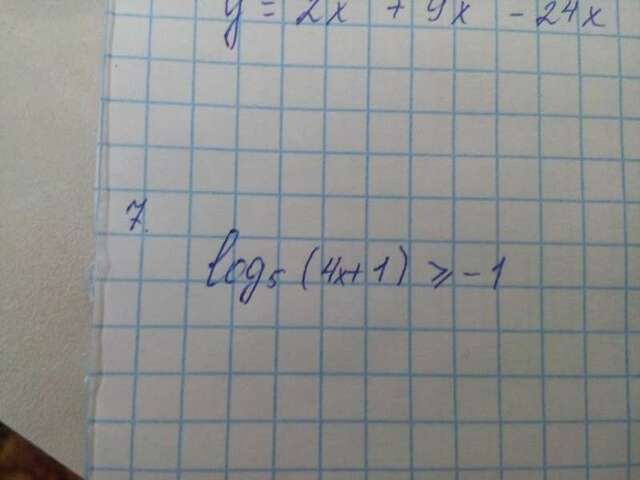 y = 2x + 9x - 24x
7.
log₅ (4x+1) ⩾ -1